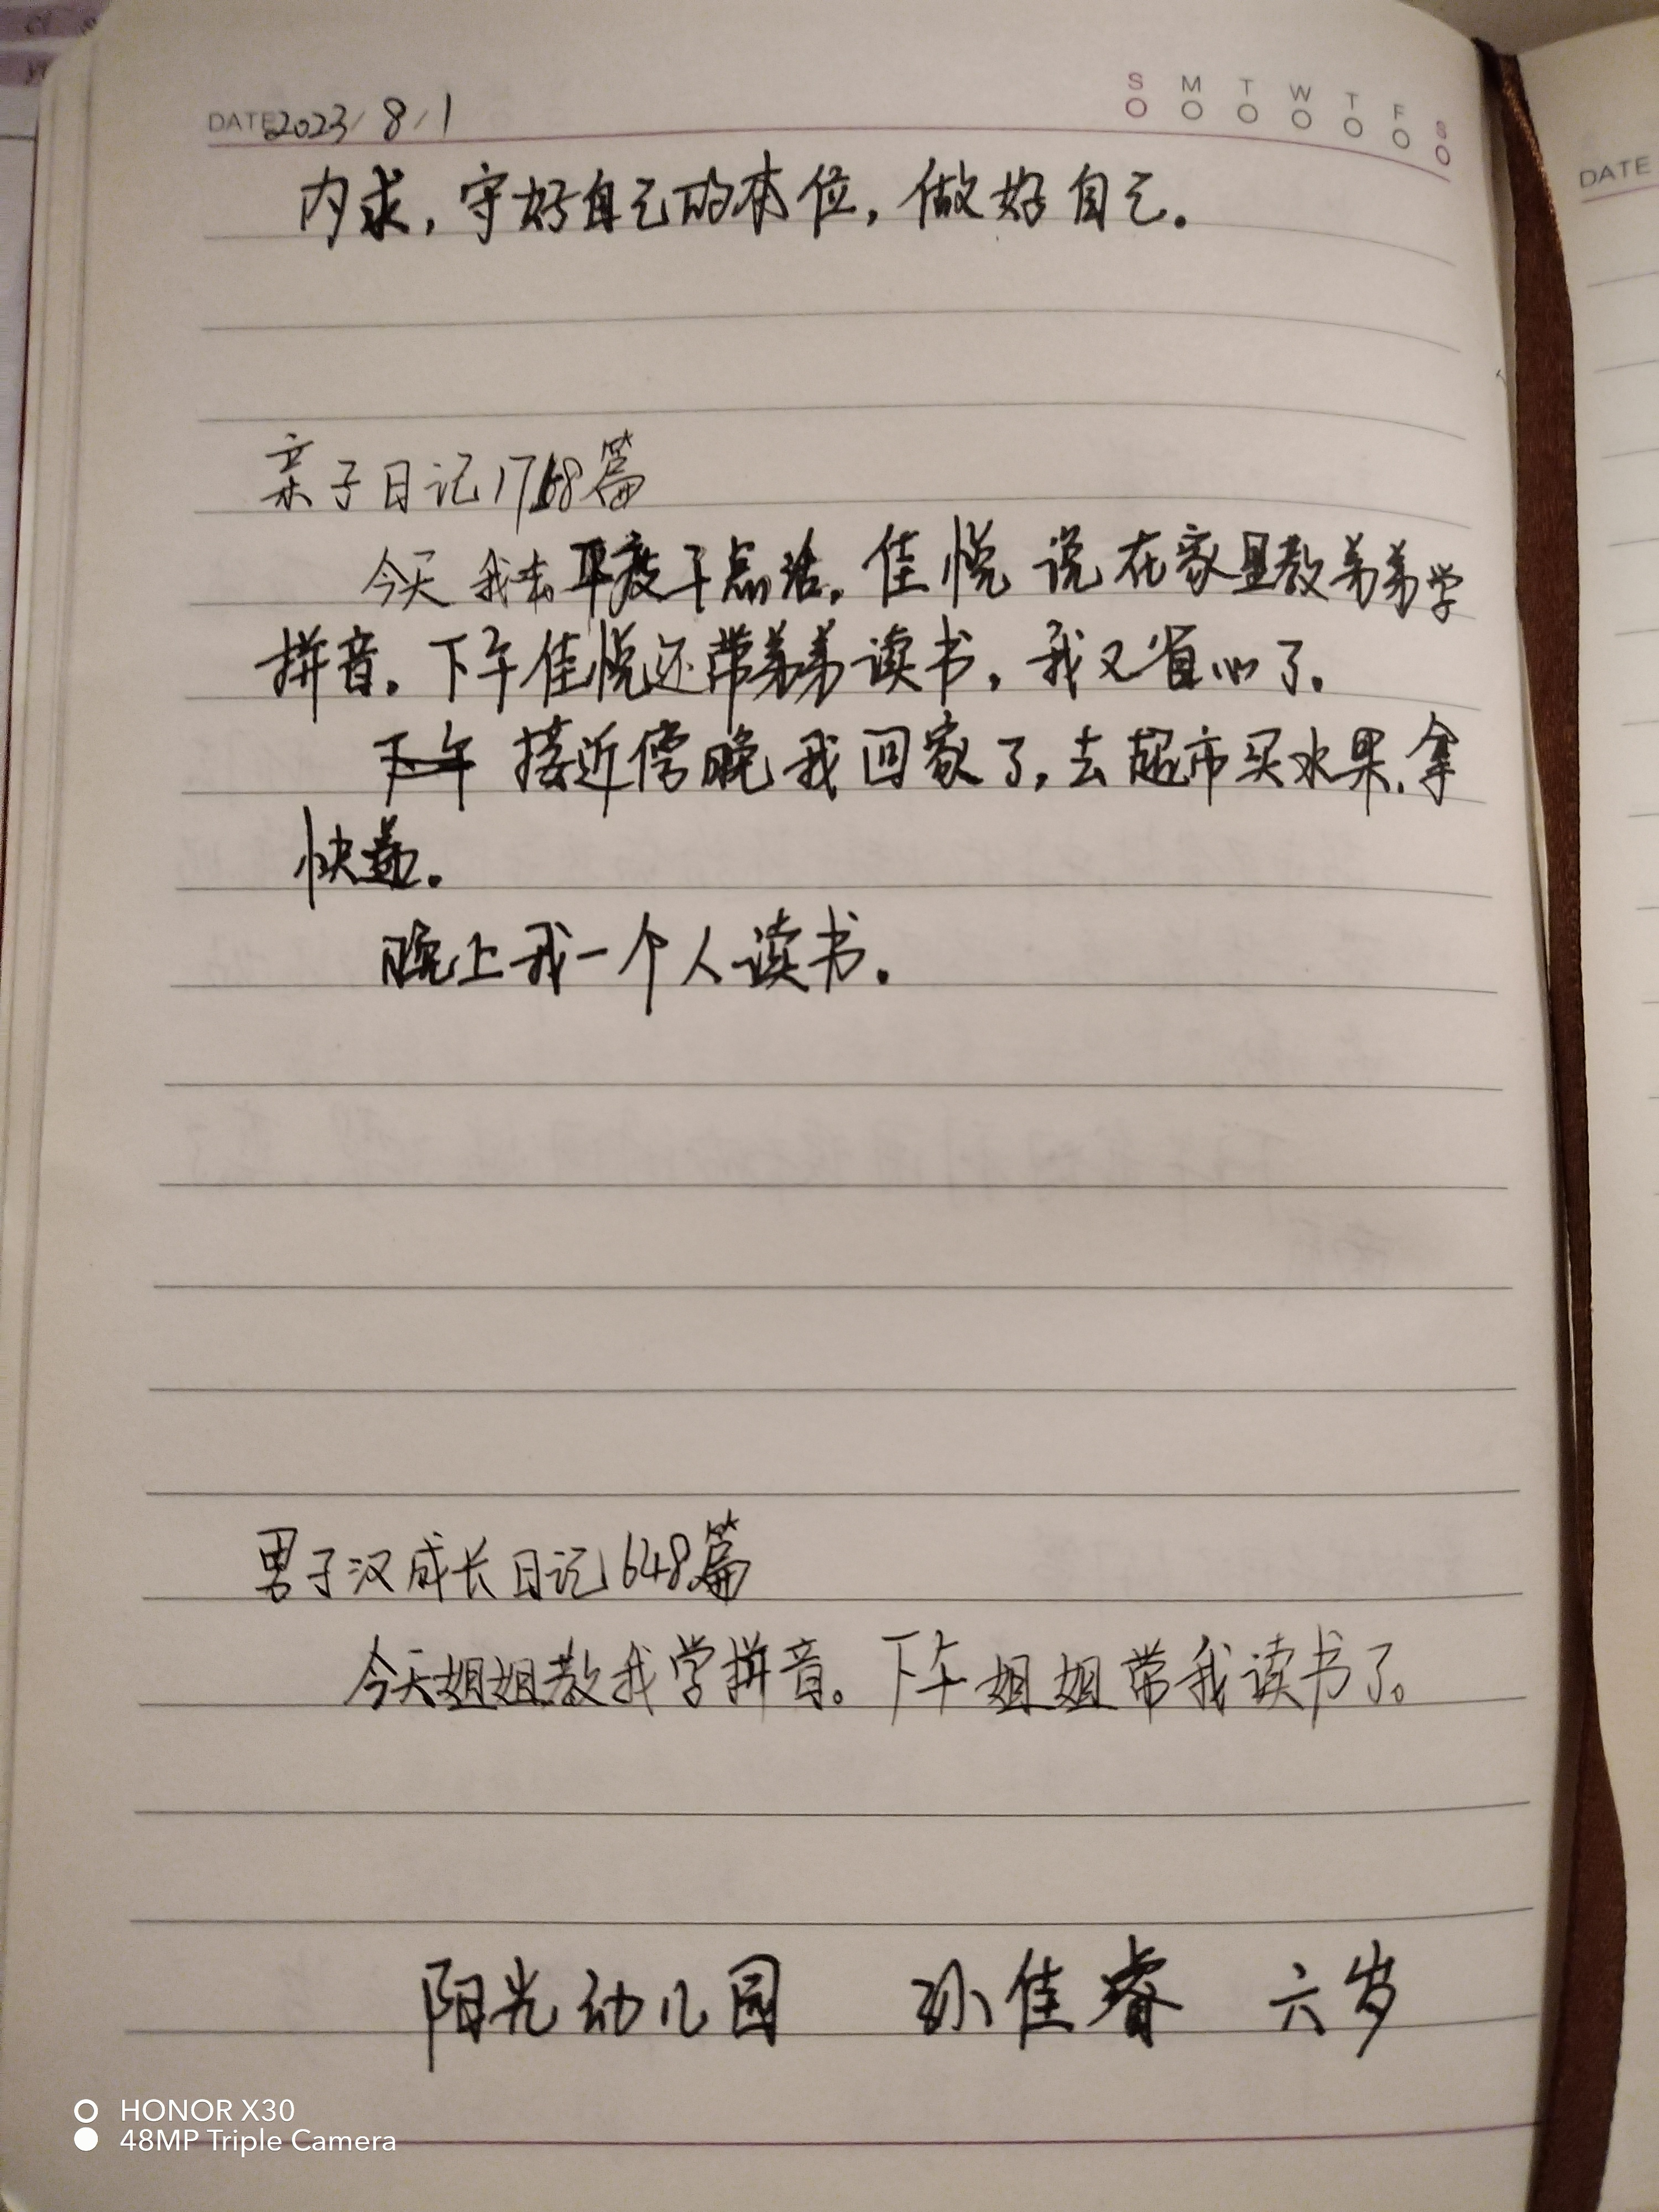 S M T W T F S
DATE 2023/8/1
内求，守好自己的本位，做好自己。
亲子日记1768篇
今天 我去 干点活。佳悦 说在家里教弟弟学
拼音。下午佳悦还带弟弟读书。我又省心了。
下午 接近傍晚我回家了，去超市买水果.拿
快递。
晚上我一个人读书。
男子汉成长日记648篇
今天姐姐教我学拼音。下午姐姐带我读书了。
阳光幼儿园 孙佳睿 六岁
HONOR X30
48MP Triple Camera
DATE